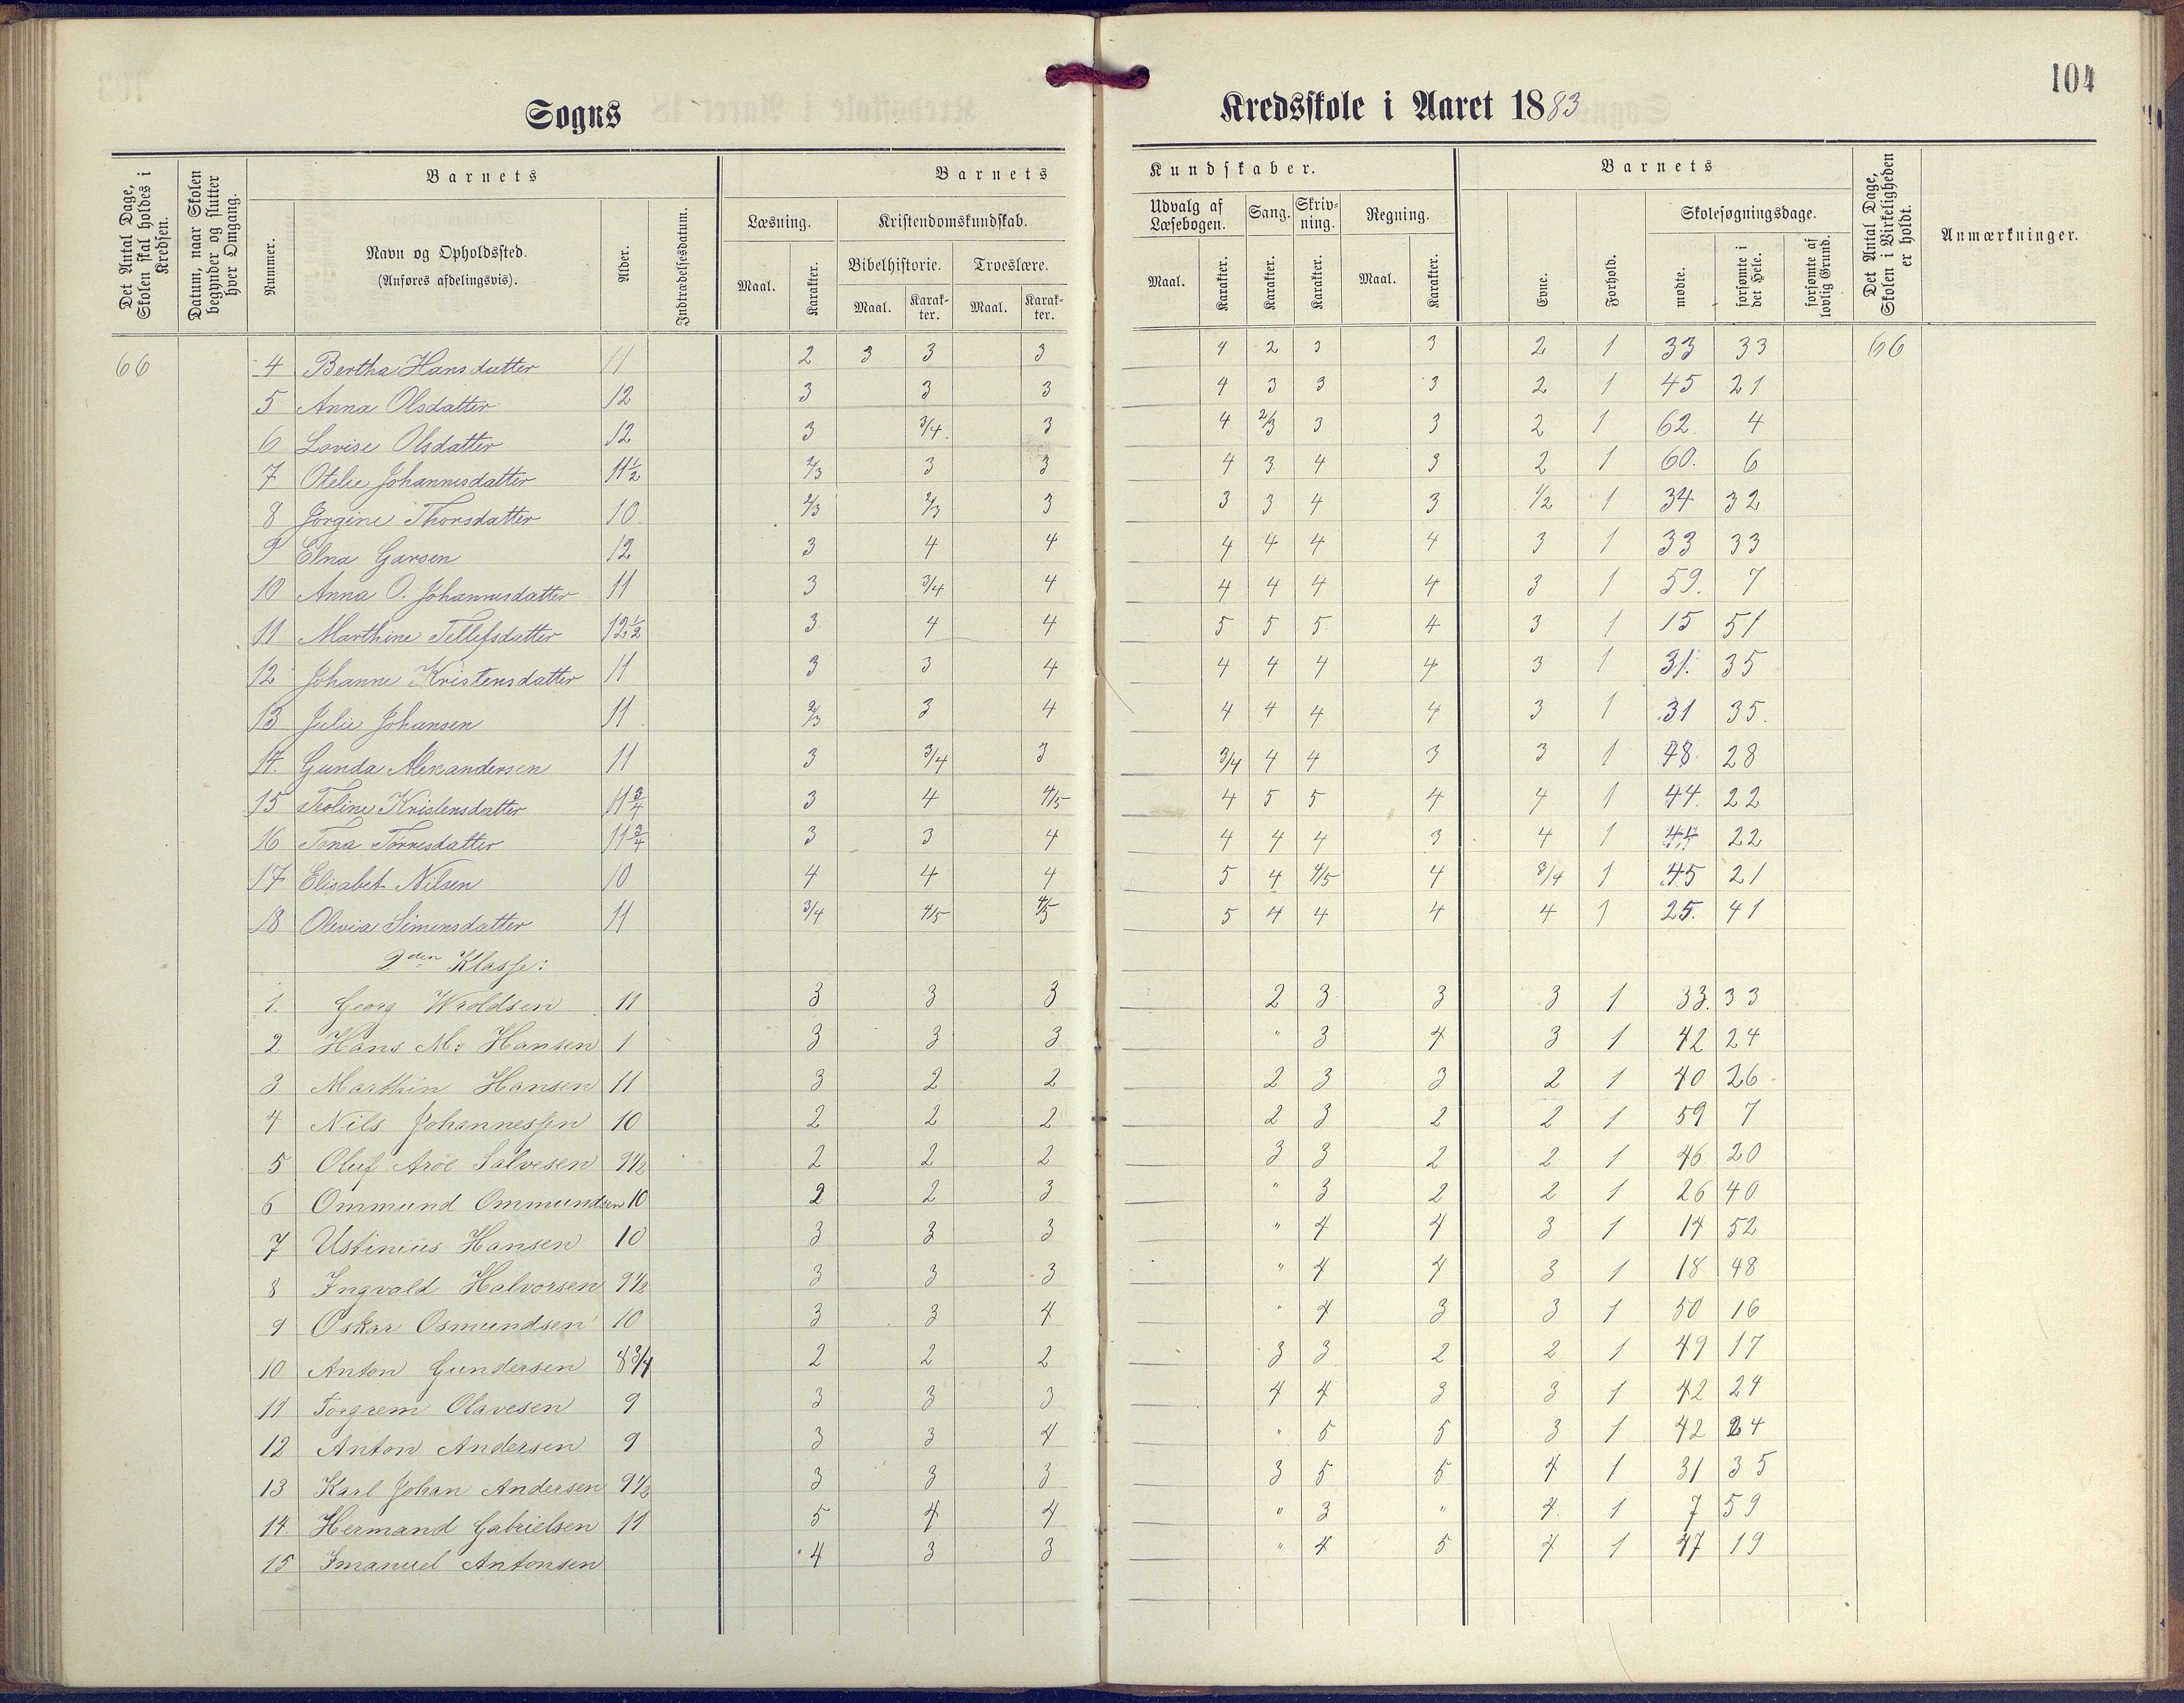 104
Sogns Kredsskole i Aaret 1883
Det Antal Dage, Skolen skal holdes i Kredsen.
Datum, naar Skolen begynder og slutter hver Omgang.
Barnets
Nummer.
Navn og Opholdssted.
(Anføres afdelingsvis).
Alder.
Indtrædelsesdatum.
Barnets Kundskaber.
Læsning.
Maal. Karakter.
Kristendomskundskab.
Bibelhistorie. Troeslære.
Maal. Karakter. Maal. Karakter.
Udvalg af Læsebogen. Sang. Skrivning. Regning.
Maal. Karakter. Karakter. Karakter. Maal. Karakter.
Barnets
Evne. Forhold.
Skolesøgningsdage.
mødte. forsømte i det Hele. forsømte af lovlig Grund.
Det Antal Dage, Skolen i Virkeligheden er holdt.
Anmærkninger.
66 4 Bertha Hansdatter 11 2 3 3 3 4 2 3 3 2 1 33 33 66
5 Anna Olsdatter 12 3 3 3 4 3 3 3 2 1 45 21
6 Lovise Olsdatter 12 3 3/4 3 4 2/3 3 3 2 1 62 4
7 Otelie Johannesdatter 11 1/2 2/3 3 3 4 3 4 3 2 1 60. 6
8 Jørgine Thorsdatter 10 2/3 2/3 3 3 3 4 3 1/2 1 34 32
9 Elna Garsen 12 3 4 4 4 4 4 4 3 1 33 33
10 Anna O. Johannesdatter 11 3 3/4 4 4 4 4 4 3 1 59. 7
11 Marthine Tellefsdatter 12 1/2 3 4 4 5 5 5 4 3 1 15 51
12 Johanne Kristensdatter 11 3 3 4 4 4 4 4 3 1 31. 35
13 Julie Johansen 11 2/3 3 4 4 4 4 4 3 1 31 35.
14. Gunda Alexandersen 11 3 3/4 3 3/4 4 4 3 3 1 48 28
15 Teoline Kristensdatter 11 3/4 3 4 4/5 4 5 5 4 4 1 44. 22
16 Tona Tørresdatter 11 3/4 3 3 4 4 4 4 3 4 1 44 22
17 Elisabet Nilsen 10 4 4 4 5 4 4/5 4 3/4 1 45 21
18 Olevia Simensdatter 11 3/4 4/5 4/5 5 4 4 4 4 1 25. 41
2den Klasse:
1. Georg Wroldsen 11 3 3 3 2 3 3 3 1 33. 33
2 Hans M: Hansen 1 3 3 3 " 3 4 3 1 42 24
3 Marthin Hansen 11 3 2 2 2 3 3 2 1 40 26
4 Nils Johannessen 10 2 2 2 2 3 2 2 1 59 7
5 Oluf Aroe Salvesen 9 1/2 2 2 2 3 3 2 2 1 46 20
6 Ommund Ommundsen 10 2 2 3 " 3 2 2 1 26 40
7 Ustinius Hansen 10 3 3 3 " 4 4 3 1 14 52
8 Ingvald Halvorsen 9 1/2 3 3 3 " 4 4 3 1 18 48
9 Oskar Osmundsen 10 3 3 4 " 4 3 3 1 50 16
10 Anton Gundersen 8 3/4 2 2 2 3 3 2 2 1 49 17
11 Torgrem Olavesen 9 3 3 3 4 4 3 3 1 42 24
12 Anton Andersen 9 3 3 4 " 5 5 3 1 42 24
13 Karl Johan Andersen 9 1/2 3 3 3 3 5 5 4 1 31 35
14. Hermand Gabrielsen 11 5 4 4 " 3 " 4. 1 7 59
15 Imanuel Antonsen 4 3 3 " 4 5 4 1 47 19